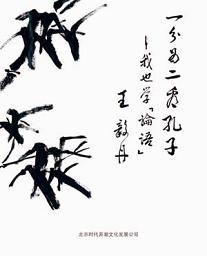 一分为二看孔子
—我也学「論語」
王 丹
北京时代弄潮文化发展公司